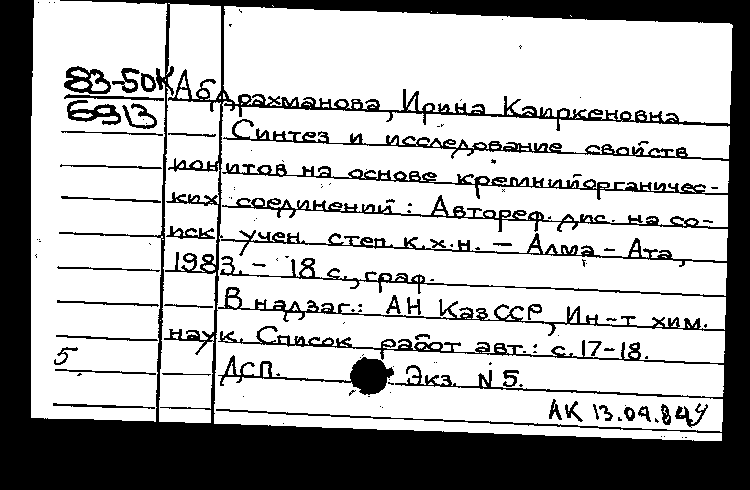 83-50К
6913
Абдрахманова, Ирина Каиркеновна
Синтез и исследование свойств
ионитов на основе кремнийорганичес-
ких соединений: Автореф. дис. на со-
иск. учен. степ. к.х.н. - Алма-Ата,
1983. - 18 с., граф.
В надзаг.: АН КазССР, Ин-т хим.
наук. Список работ авт.: с. 17-18.
5
ДСП. Экз. N 5.
АК 13.04.84